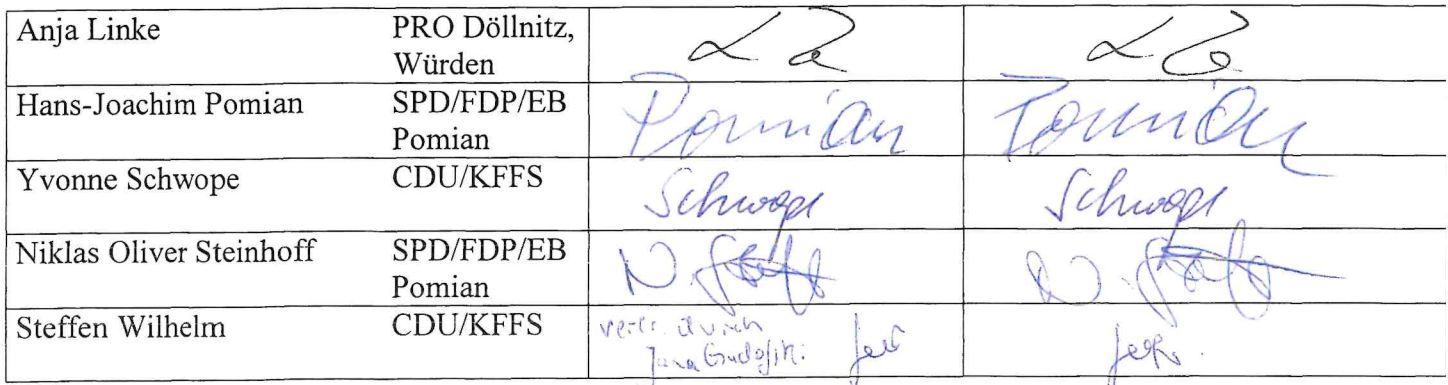 Anja Linke PRO Döllnitz,
Würden
Hans-Joachim Pomian SPD/FDP/EB
Pomian Pomian Pomian
Yvonne Schwope CDU/KFFS
Schwope Schwope
Niklas Oliver Steinhoff SPD/FDP/EB
Pomian
Steffen Wilhelm CDU/KFFS
durch
Jana